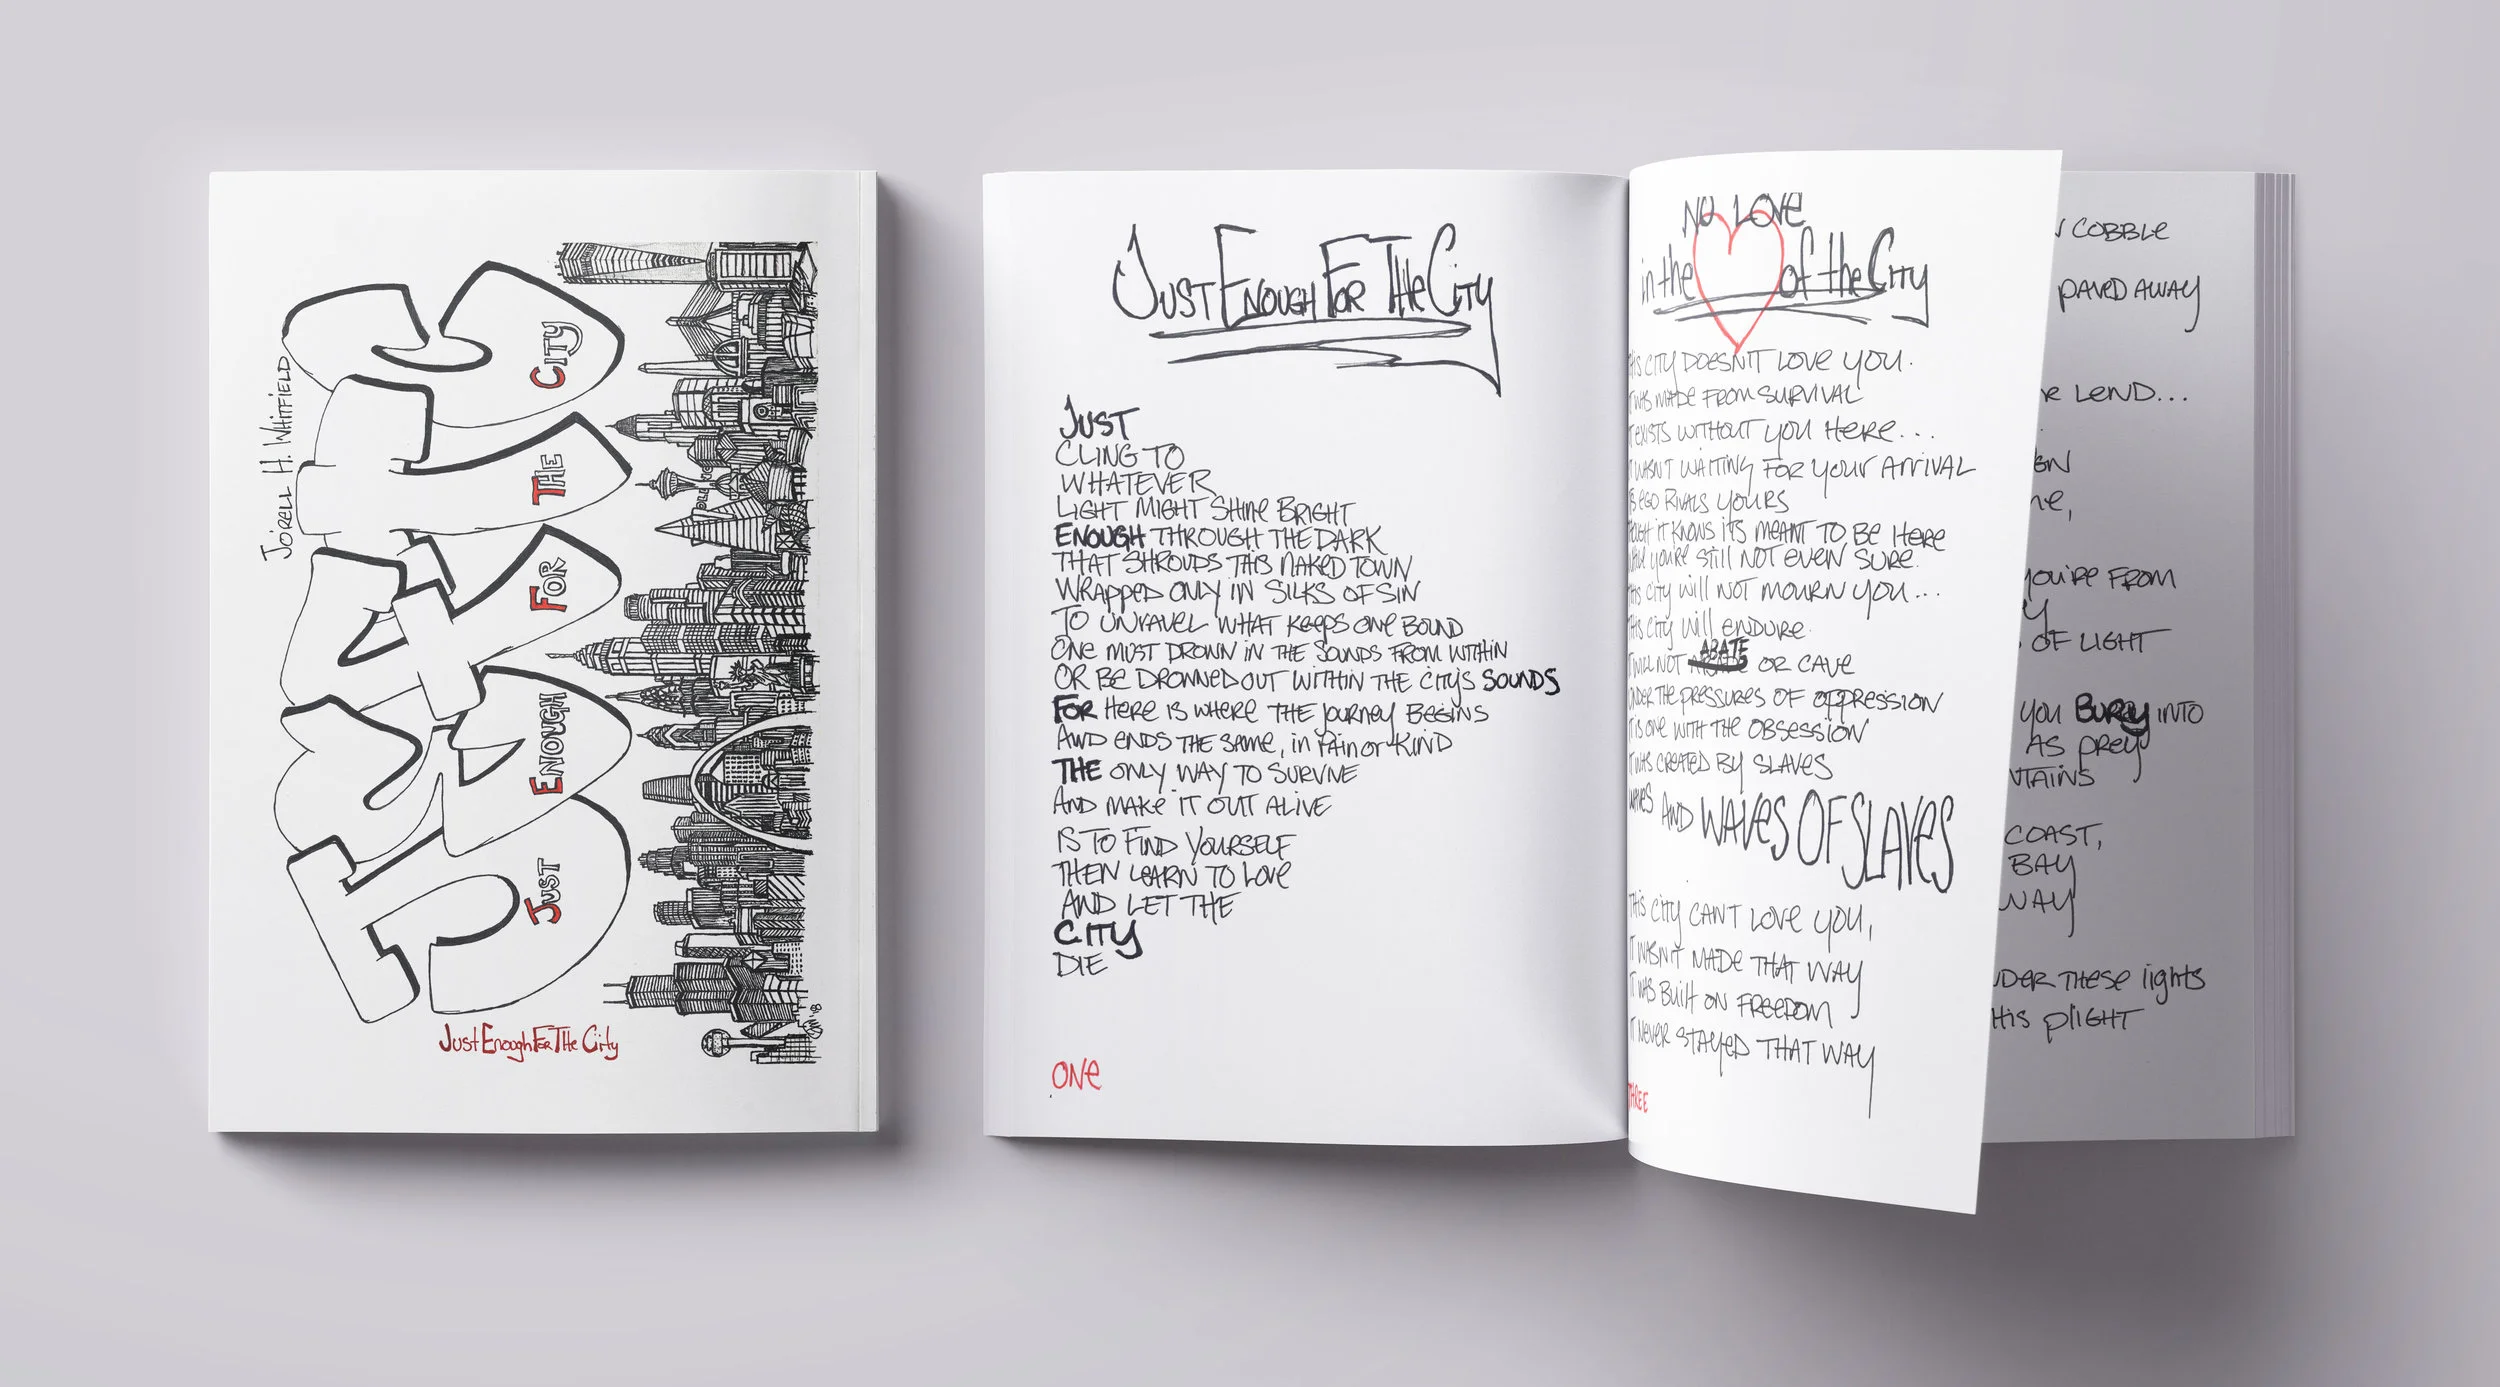 JO'RELL H. WHITFIELD
CITY
THE
FOR
ENOUGH
JUST
Just Enough For The City
'18
JUST ENOUGH FOR THE CITY
JUST
CLING TO
WHATEVER
LIGHT MIGHT SHINE BRIGHT
ENOUGH THROUGH THE DARK
THAT SHROUDS THIS NAKED TOWN
WRAPPED ONLY IN SILKS OF SIN
TO UNRAVEL WHAT KEEPS ONE BOUND
ONE MUST DROWN IN THE SOUNDS FROM WITHIN
OR BE DROWNED OUT WITHIN THE CITY'S SOUNDS
FOR HERE IS WHERE THE JOURNEY BEGINS
AND ENDS THE SAME, IN PAIN OR KIND
THE ONLY WAY TO SURVIVE
AND MAKE IT OUT ALIVE
IS TO FIND YOURSELF
THEN LEARN TO LOVE
AND LET THE
CITY
DIE
ONE
NO LOVE
in the of the CITY
THIS CITY DOESN'T LOVE YOU.
IT WAS MADE FROM SURVIVAL
IT EXISTS WITHOUT YOU HERE...
IT WASN'T WAITING FOR YOUR ARRIVAL
ITS EGO RIVALS YOURS
THOUGH IT KNOWS ITS MEANT TO BE HERE
WHILE YOU'RE STILL NOT EVEN SURE.
THIS CITY WILL NOT MOURN YOU...
THIS CITY WILL ENDURE.
IT WILL NOT ABATE OR CAVE
UNDER THE PRESSURES OF OPPRESSION
IT IS ONE WITH THE OBSESSION
IT WAS CREATED BY SLAVES
WAVES AND WAVES OF SLAVES
THIS CITY CAN'T LOVE YOU,
IT WASN'T MADE THAT WAY
IT WAS BUILT ON FREEDOM
IT NEVER STAYED THAT WAY
THREE
COBBLE
PAVED AWAY
LEND...
YOU'RE FROM
OF LIGHT
YOU BURY INTO
AS PREY
COAST,
BAY
WAY
THESE lights
THIS PLIGHT